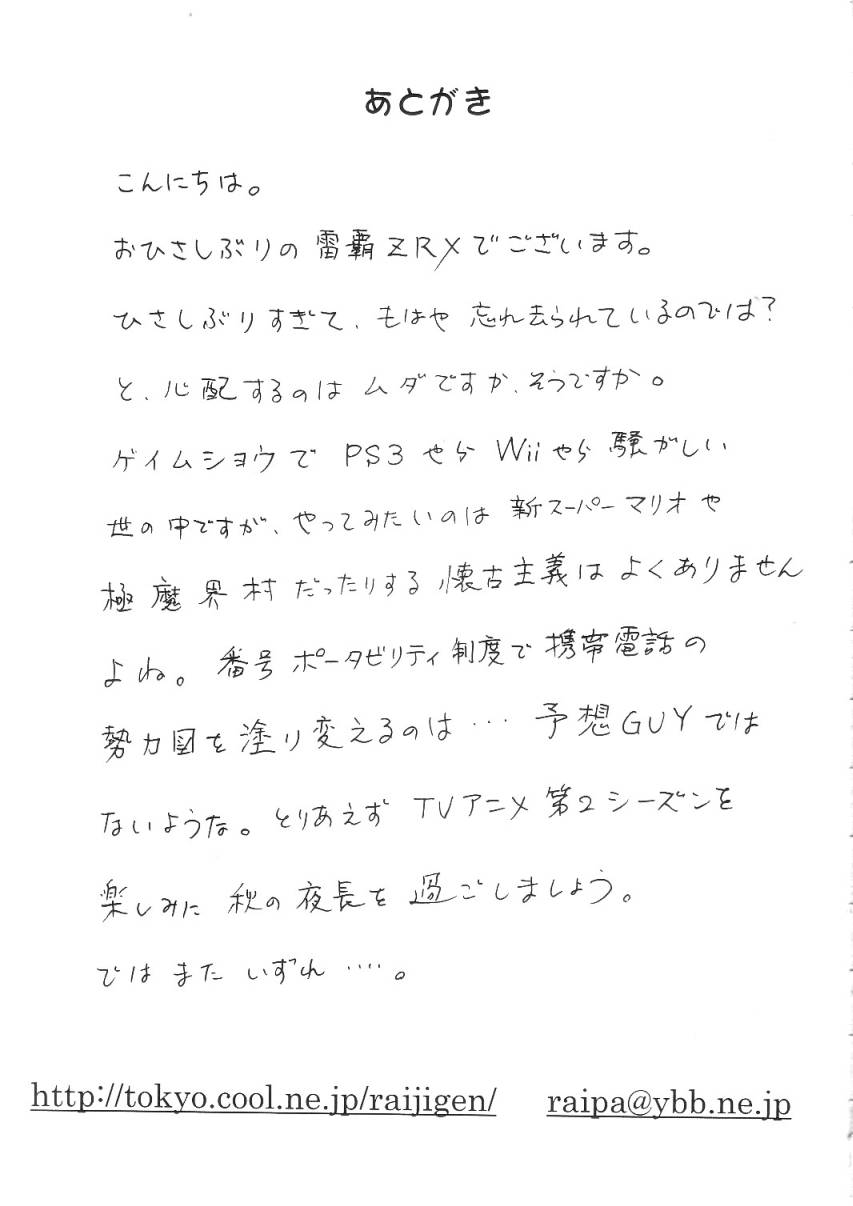 あとがき
こんにちは。
おひさしぶりの 雷覇ZRXでございます。
ひさしぶりすぎて、もはや 忘れ去られているのでは?
と、心配するのは ムダですか、そうですか。
ゲイムショウで PS3やら Wiiやら 騒がしい
世の中ですが、やってみたいのは 新スーパーマリオや
極魔界村だったりする 懐古主義はよくありません
よね。番号ポータビリティ制度で携帯電話の
勢力図を塗り変えるのは… 予想GUYでは
ないような。とりあえず TVアニメ 第2シーズンを
楽しみに 秋の夜長を 過ごしましょう。
では また いずれ ‥‥。
http://tokyo.cool.ne.jp/raijigen/ raipa@ybb.ne.jp